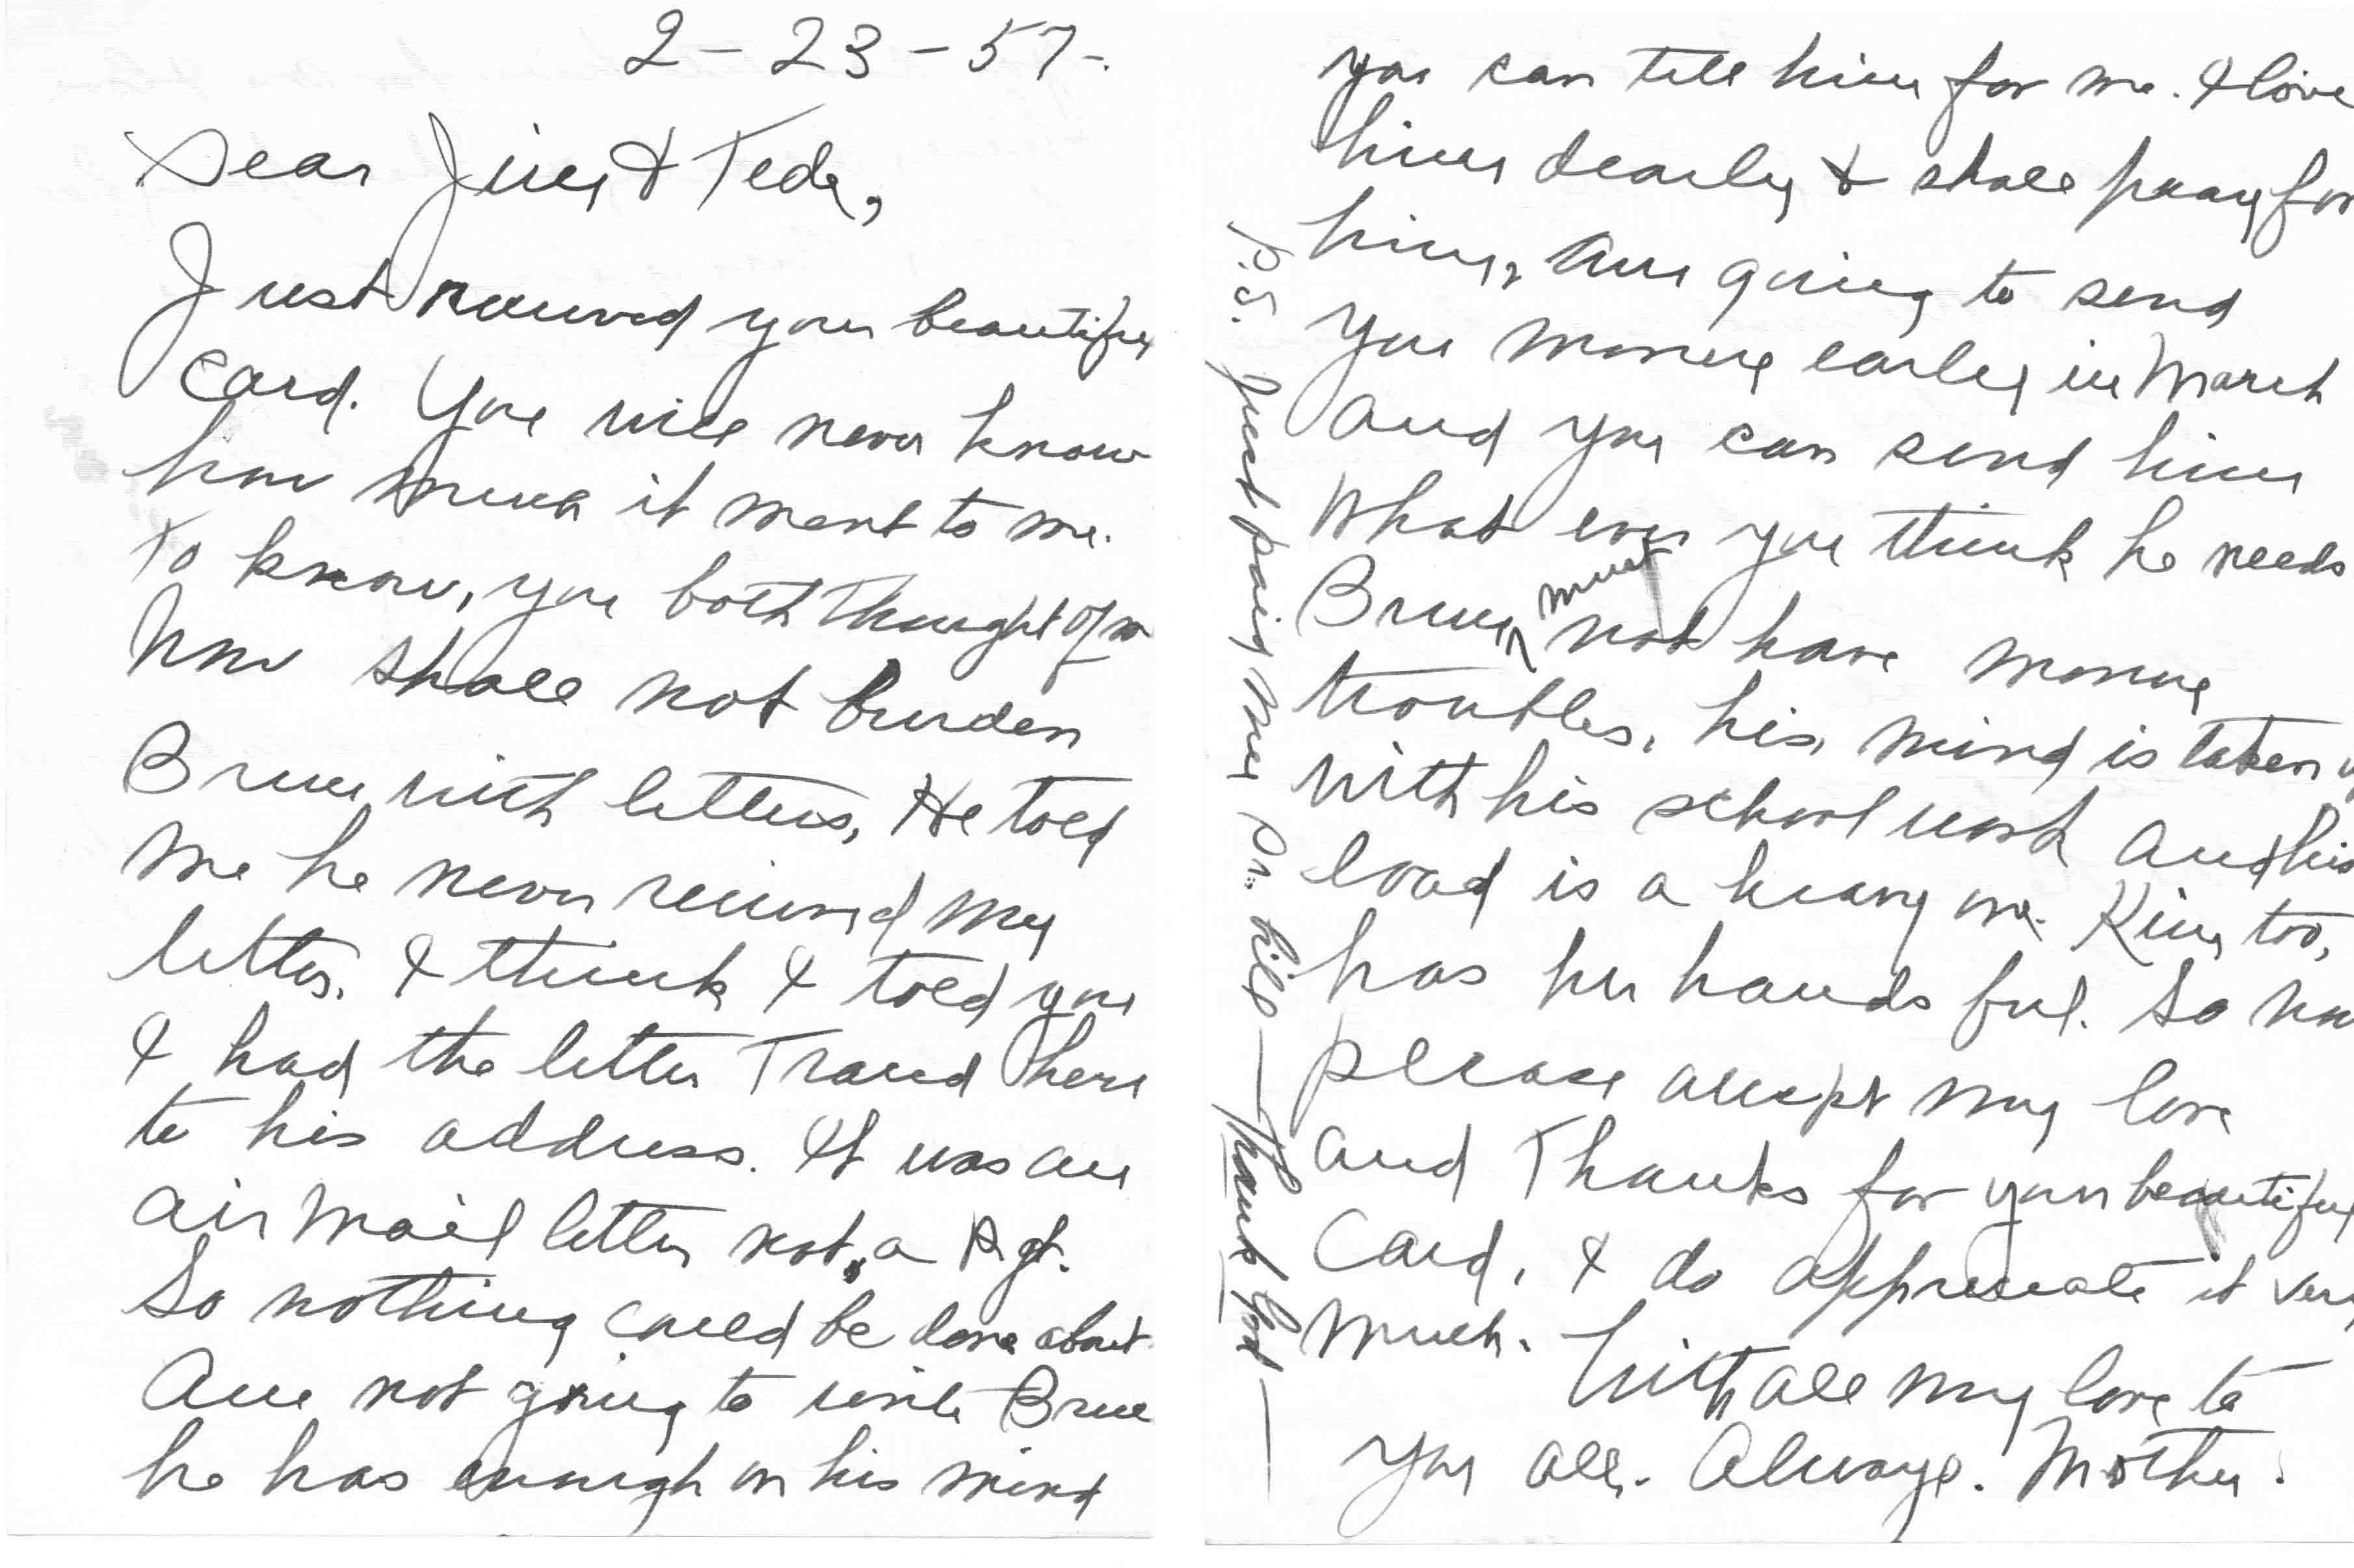 2-23-57-.
Dear Jim & Teda,
Just received your beautiful
card. You will never know
how much it ment to me.
To know, you both thought of me
Now shall not burden
Bruce with letters, He told
me he never received my
letter. I think I told you
I had the letter Traced here
to his address. It was an
air mail letter not, a Rgt.
So nothing could be done about
Am not going to write Bruce
he has enough on his mind
you can tell him for me. I love
him dearly & shall pray for
him, Am going to send
you money early in March
and you can send him
what ever you think he needs
Bruce must not have money
troubles, his mind is taken
with his school work and his
load is a heavy one. Kim, too,
has her hands ful. So now
please accept my love
and Thanks for your beautiful
Card, I do appreciate it very
much. With all my love to
you all. Always. Mother.
P.S. Just paid my Dr. bill — Thank God —